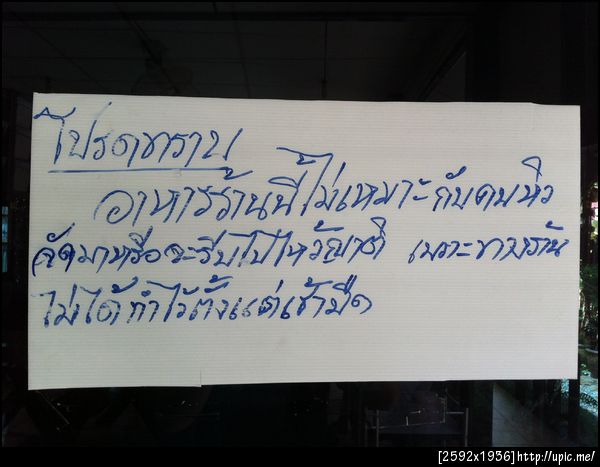 โปรดทราบ
อาหารร้านนี้ไม่เหมาะกับคนหิว
จัดมาหรือจะรีบไปไหว้ญาติ เพราะทางร้าน
ไม่ได้ทำไว้ตั้งแต่เช้ามืด
[2592x1936]http://upic.me/